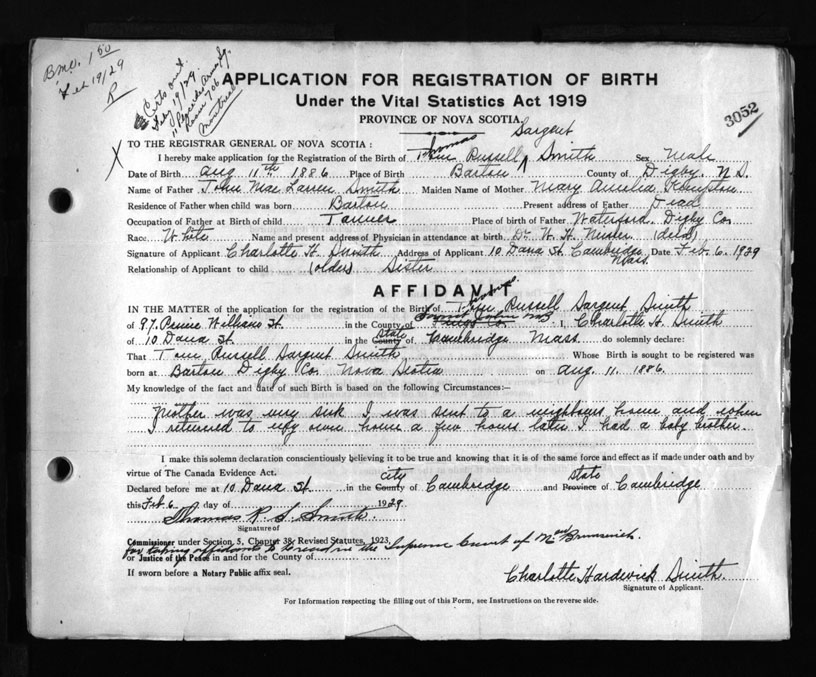 B.m.o. 1.50
Feb 19/29
R
Certs out
Feb 19/29
Room 706
Montreal
3052
APPLICATION FOR REGISTRATION OF BIRTH
Under the Vital Statistics Act 1919
PROVINCE OF NOVA SCOTIA
X TO THE REGISTRAR GENERAL OF NOVA SCOTIA:
Thomas Sargent
I hereby make application for the Registration of the Birth of Tom Russell ^ Smith Sex Male
Date of Birth Aug 11th 1886 Place of Birth Barton County of Digby. N S.
Name of Father John Mac Larren Smith Maiden Name of Mother Mary Amelia Kempton
Residence of Father when child was born Barton Present address of Father Dead
Occupation of Father at Birth of child Tanner Place of birth of Father Waterford. Digby Co.
Race White Name and present address of Physician in attendance at birth Dr. W. H. (dead)
Signature of Applicant Charlotte H. Smith Address of Applicant 10 Dana St. Cambridge Mass. Date Feb. 6. 1929
Relationship of Applicant to child (older) Sister
AFFIDAVIT
IN THE MATTER of the application for the registration of the Birth of Tom Russell Sargent Smith
of 97. William St. in the County of Saint John NB I, Charlotte H. Smith
of 10 Dana St. in the County state of Cambridge Mass. do solemnly declare:
That Tom Russell Sargent Smith, Whose Birth is sought to be registered was
born at Barton Digby Co. Nova Scotia on Aug. 11. 1886.
My knowledge of the fact and date of such Birth is based on the following Circumstances:—
Mother was very sick I was sent to a neighbours home and when
I returned to my own home a few hours later I had a baby brother.
I make this solemn declaration conscientiously believing it to be true and knowing that it is of the same force and effect as if made under oath and by
virtue of The Canada Evidence Act.
Declared before me at 10 Dana St. in the County city of Cambridge and Province state of Cambridge
this Feb 6 day of 1929
Thomas R. S. Smith.
Signature of
Commissioner under Section 5, Chapter 38, Revised Statutes, 1923,
for taking affidavits to be read in the Supreme Court of New Brunswick.
or Justice of the Peace in and for the County of
If sworn before a Notary Public affix seal.
Charlotte Hardwick Smith.
Signature of Applicant.
For Information respecting the filling out of this Form, see Instructions on the reverse side.